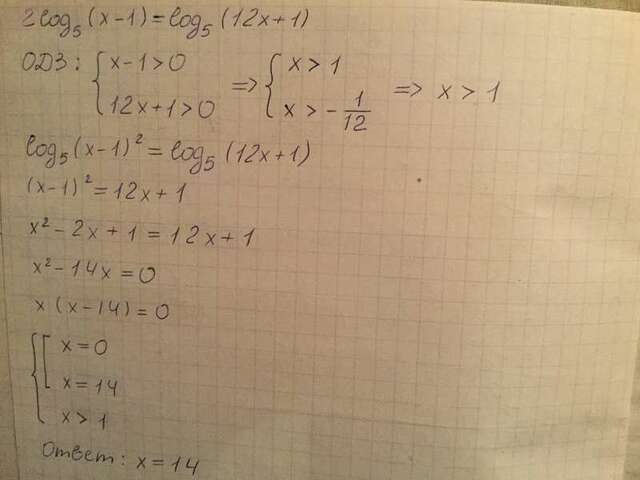 2log₅(x-1)=log₅(12x+1)
ОДЗ: { x-1>0 12x+1>0 => { x>1 x>-1/12 => x>1
log₅(x-1)²=log₅(12x+1)
(x-1)²=12x+1
x²-2x+1=12x+1
x²-14x=0
x(x-14)=0
{ [ x=0
x=14
x>1
Ответ: x=14